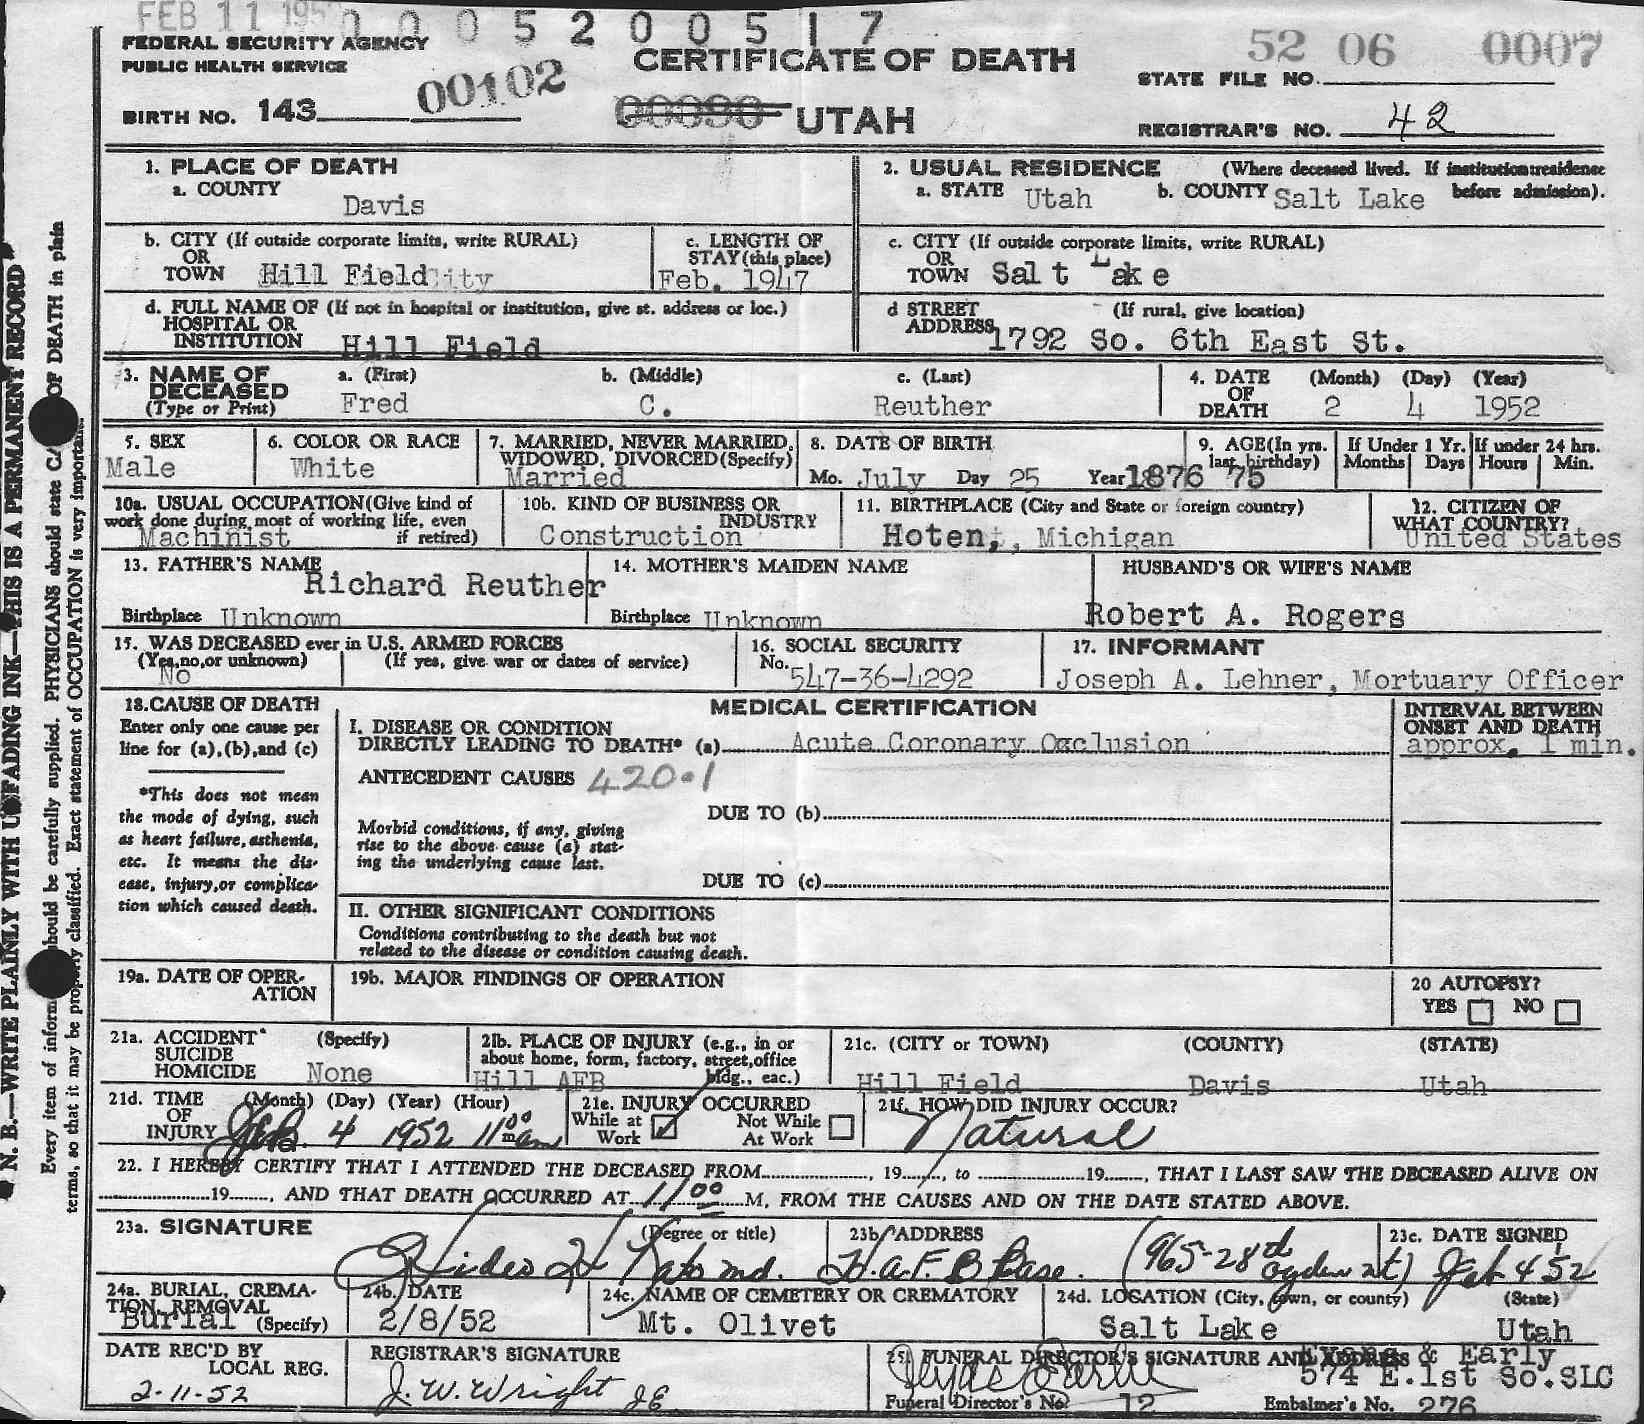 FEB 11 195
0 0 0 5 2 0 0 5 1 7
FEDERAL SECURITY AGENCY
PUBLIC HEALTH SERVICE
CERTIFICATE OF DEATH
52 06 0007
STATE FILE NO.
BIRTH NO. 143 00102
00090 UTAH
REGISTRAR'S NO. 42
1. PLACE OF DEATH
a. COUNTY
Davis
2. USUAL RESIDENCE (Where deceased lived. If institution: residence before admission).
a. STATE Utah b. COUNTY Salt Lake
b. CITY (If outside corporate limits, write RURAL)
OR
TOWN Hill Field City
c. LENGTH OF
STAY (this place)
Feb. 1947
c. CITY (If outside corporate limits, write RURAL)
OR
TOWN Salt Lake
d. FULL NAME OF (If not in hospital or institution, give st. address or loc.)
HOSPITAL OR
INSTITUTION Hill Field
d STREET (If rural, give location)
ADDRESS 1792 So. 6th East St.
3. NAME OF
DECEASED
(Type or Print)
a. (First) b. (Middle) c. (Last)
Fred C. Reuther
4. DATE (Month) (Day) (Year)
OF
DEATH 2 4 1952
5. SEX
Male
6. COLOR OR RACE
White
7. MARRIED, NEVER MARRIED,
WIDOWED, DIVORCED (Specify)
Married
8. DATE OF BIRTH
Mo. July Day 25 Year 1876
9. AGE (In yrs.
last birthday)
75
If Under 1 Yr.
Months Days
If under 24 hrs.
Hours Min.
10a. USUAL OCCUPATION (Give kind of
work done during most of working life, even
if retired)
Machinist
10b. KIND OF BUSINESS OR
INDUSTRY
Construction
11. BIRTHPLACE (City and State or foreign country)
Hoten, Michigan
12. CITIZEN OF
WHAT COUNTRY?
United States
13. FATHER'S NAME
Richard Reuther
Birthplace Unknown
14. MOTHER'S MAIDEN NAME
Birthplace Unknown
HUSBAND'S OR WIFE'S NAME
Robert A. Rogers
15. WAS DECEASED ever in U.S. ARMED FORCES
(Yes, no, or unknown) (If yes, give war or dates of service)
No
16. SOCIAL SECURITY
No. 547-36-4292
17. INFORMANT
Joseph A. Lehner, Mortuary Officer
18. CAUSE OF DEATH
Enter only one cause per
line for (a), (b), and (c)
*This does not mean
the mode of dying, such
as heart failure, asthenia,
etc. It means the dis-
ease, injury, or complica-
tion which caused death.
MEDICAL CERTIFICATION
I. DISEASE OR CONDITION
DIRECTLY LEADING TO DEATH* (a) Acute Coronary Occlusion
INTERVAL BETWEEN
ONSET AND DEATH
approx. 1 min.
ANTECEDENT CAUSES 420.1
DUE TO (b)
Morbid conditions, if any, giving
rise to the above cause (a) stat-
ing the underlying cause last.
DUE TO (c)
II. OTHER SIGNIFICANT CONDITIONS
Conditions contributing to the death but not
related to the disease or condition causing death.
19a. DATE OF OPER-
ATION
19b. MAJOR FINDINGS OF OPERATION
20 AUTOPSY?
YES NO
21a. ACCIDENT (Specify)
SUICIDE
HOMICIDE None
21b. PLACE OF INJURY (e.g., in or
about home, form, factory, street, office
bldg., eac.)
Hill AFB
21c. (CITY or TOWN) (COUNTY) (STATE)
Hill Field Davis Utah
21d. TIME (Month) (Day) (Year) (Hour)
OF
INJURY Feb. 4 1952 11 00 am
21e. INJURY OCCURRED
While at Work ✓ Not While At Work
21f. HOW DID INJURY OCCUR?
Natural
22. I HEREBY CERTIFY THAT I ATTENDED THE DECEASED FROM , 19 , to 19 , THAT I LAST SAW THE DECEASED ALIVE ON
19 , AND THAT DEATH OCCURRED AT 11 00 M, FROM THE CAUSES AND ON THE DATE STATED ABOVE.
23a. SIGNATURE (Degree or title)
Hideo H Kato md.
23b. ADDRESS
H.A.F.B Base. (965-28th Ogden ut)
23c. DATE SIGNED
Feb 4 52
24a. BURIAL, CREMA-
TION, REMOVAL
(Specify)
Burial
24b. DATE
2/8/52
24c. NAME OF CEMETERY OR CREMATORY
Mt. Olivet
24d. LOCATION (City, town, or county) (State)
Salt Lake Utah
DATE REC'D BY
LOCAL REG.
2-11-52
REGISTRAR'S SIGNATURE
J. W. Wright
25. FUNERAL DIRECTOR'S SIGNATURE AND ADDRESS
Evans & Early
574 E.1st So.SLC
Funeral Director's No. 12 Embalmer's No. 276
N. B.—WRITE PLAINLY WITH UNFADING INK—THIS IS A PERMANENT RECORD
Every item of inform should be carefully supplied. PHYSICIANS should state CA OF DEATH in plain
terms, so that it may be properly classified. Exact statement of OCCUPATION is very important.